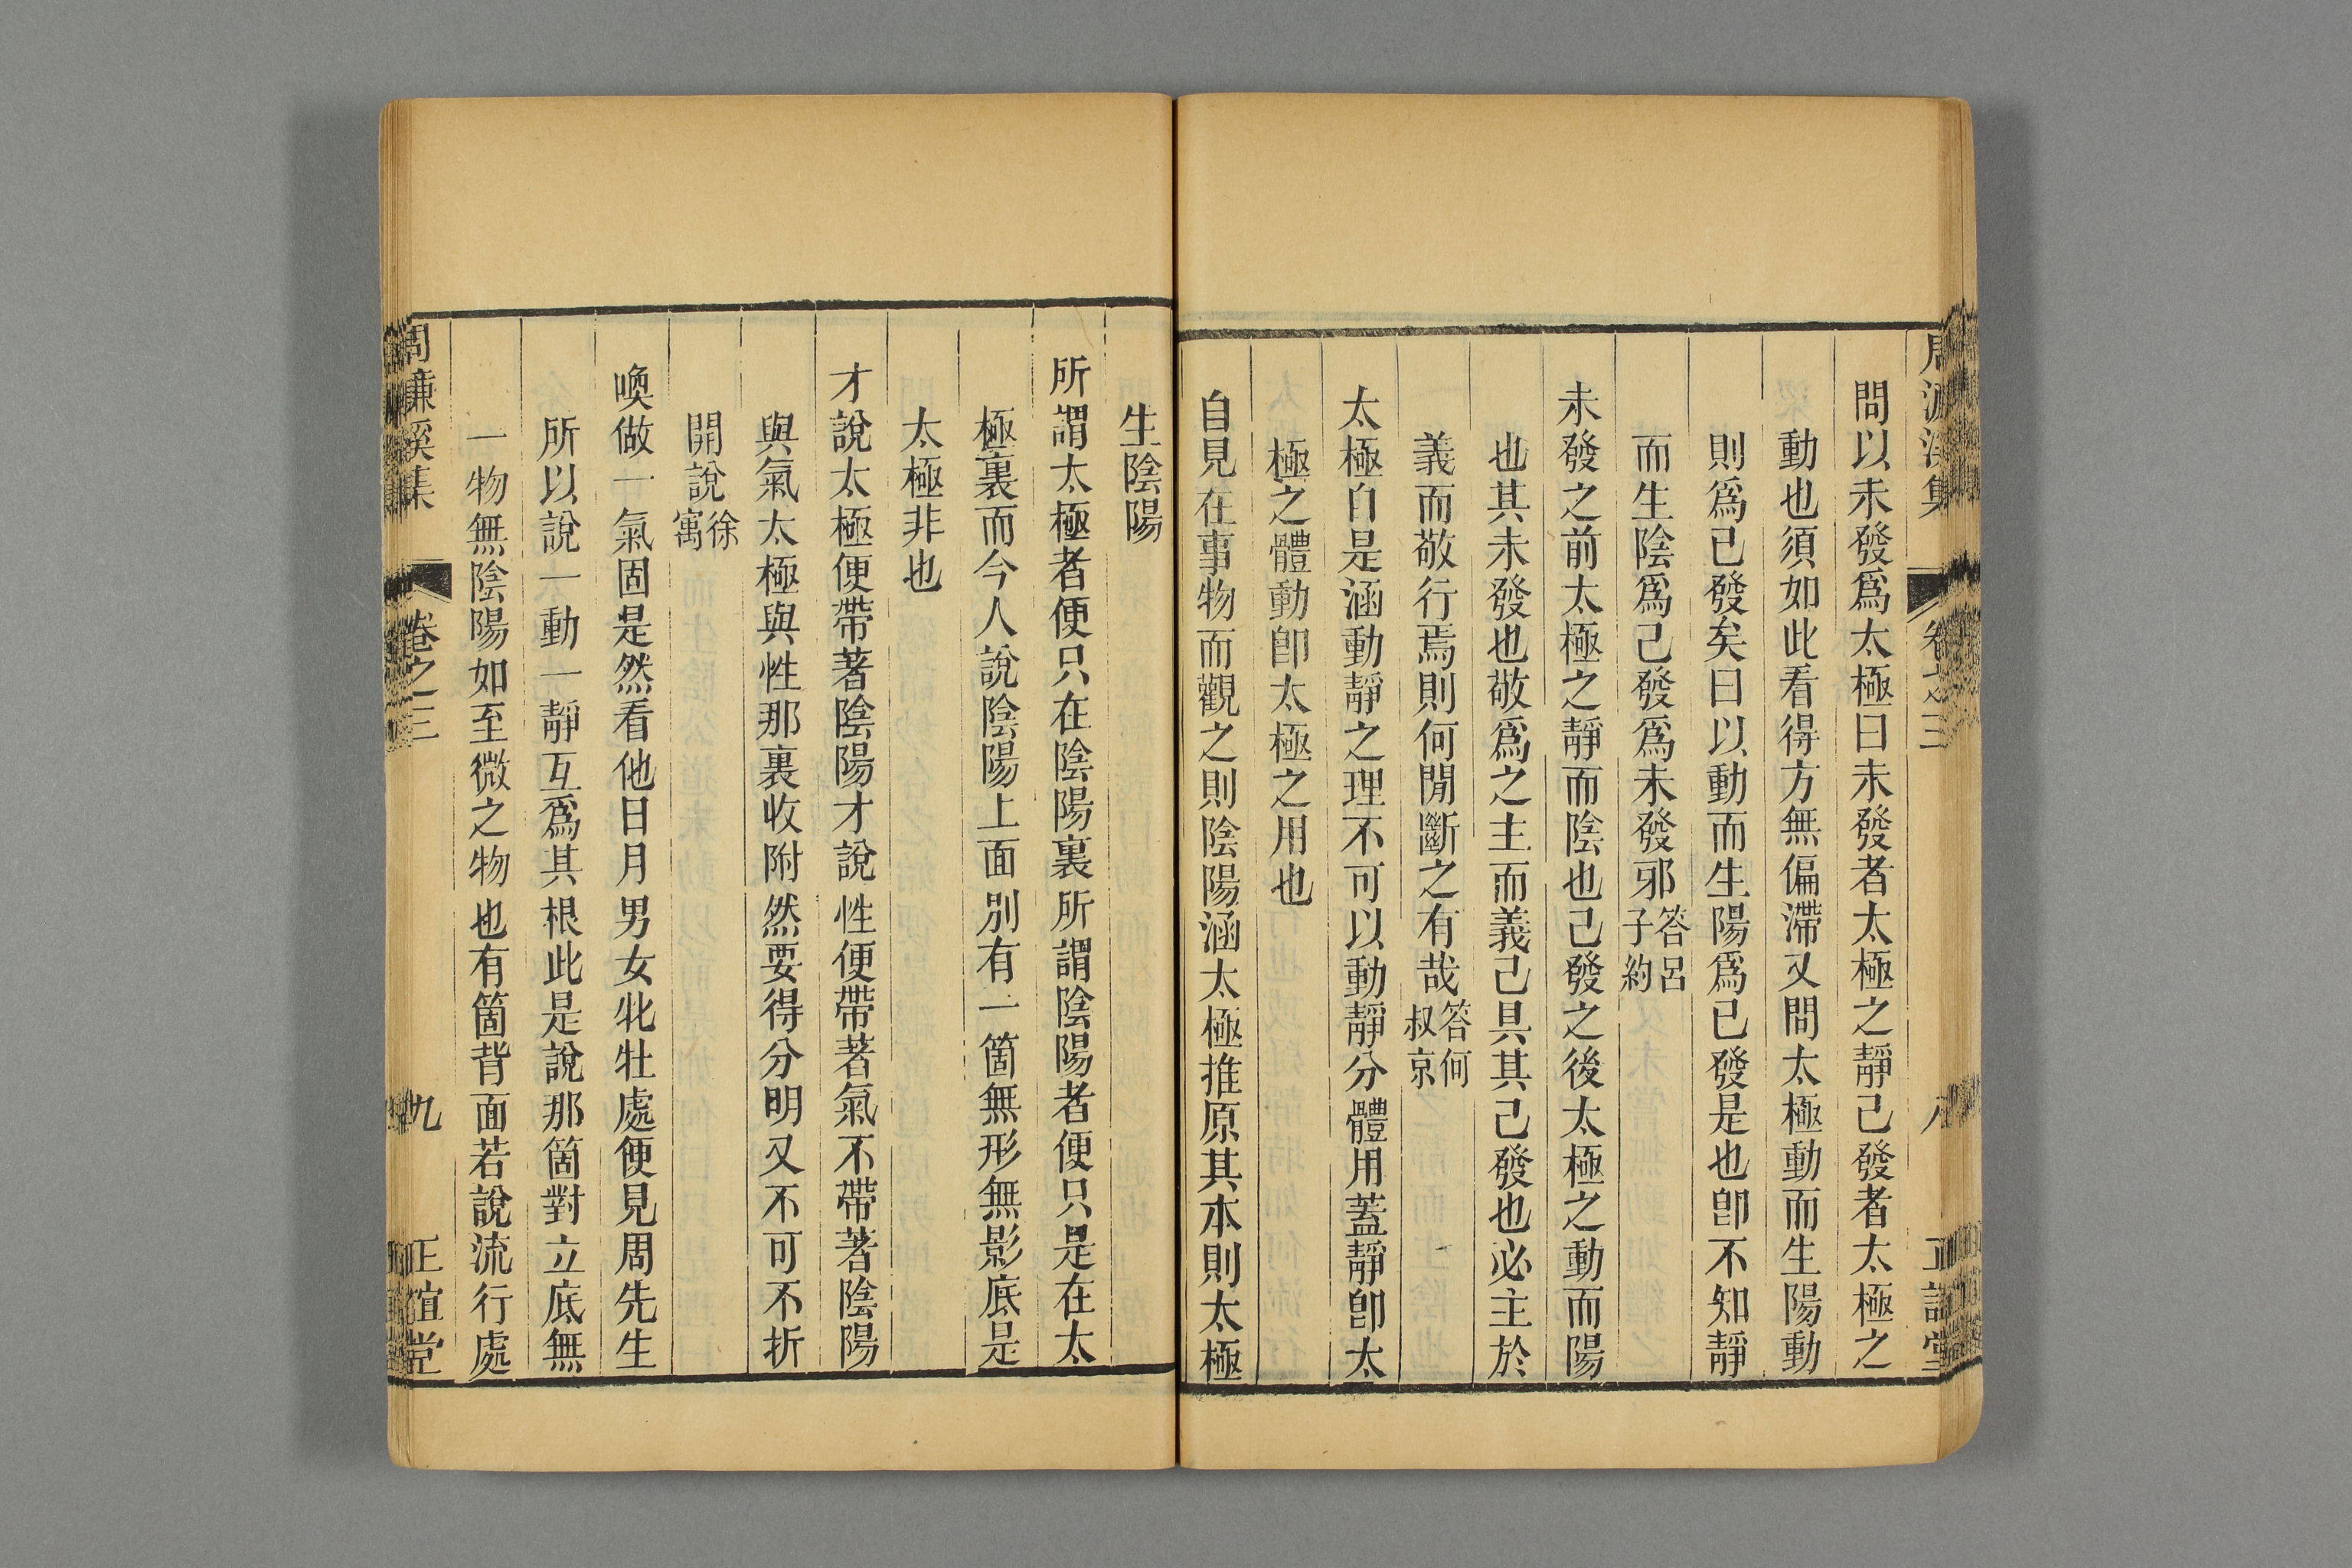 問以未發爲太極曰未發者太極之靜己發者太極之
動也須如此看得方無偏滯又問太極動而生陽動
則爲已發矣曰以動而生陽爲已發是也卽不知靜
而生陰爲己發爲未發邪答呂子約
未發之前太極之靜而陰也己發之後太極之動而陽
也其未發也敬爲之主而義己具其己發也必主於
義而敬行焉則何閒斷之有哉答何叔京
太極自是涵動靜之理不可以動靜分體用蓋靜卽太
極之體動卽太極之用也
自見在事物而觀之則陰陽涵太極推原其本則太極
生陰陽
所謂太極者便只在陰陽裏所謂陰陽者便只是在太
極裏而今人說陰陽上面別有一箇無形無影底是
太極非也
才說太極便帶著陰陽才說性便帶著氣不帶著陰陽
與氣太極與性那裏收附然要得分明又不可不折
開說徐寓
喚做一氣固是然看他日月男女牝牡處便見周先生
所以說一動一靜互爲其根此是說那箇對立底無
一物無陰陽如至微之物也有箇背面若說流行處
周濂溪集 卷之三 九 正誼堂